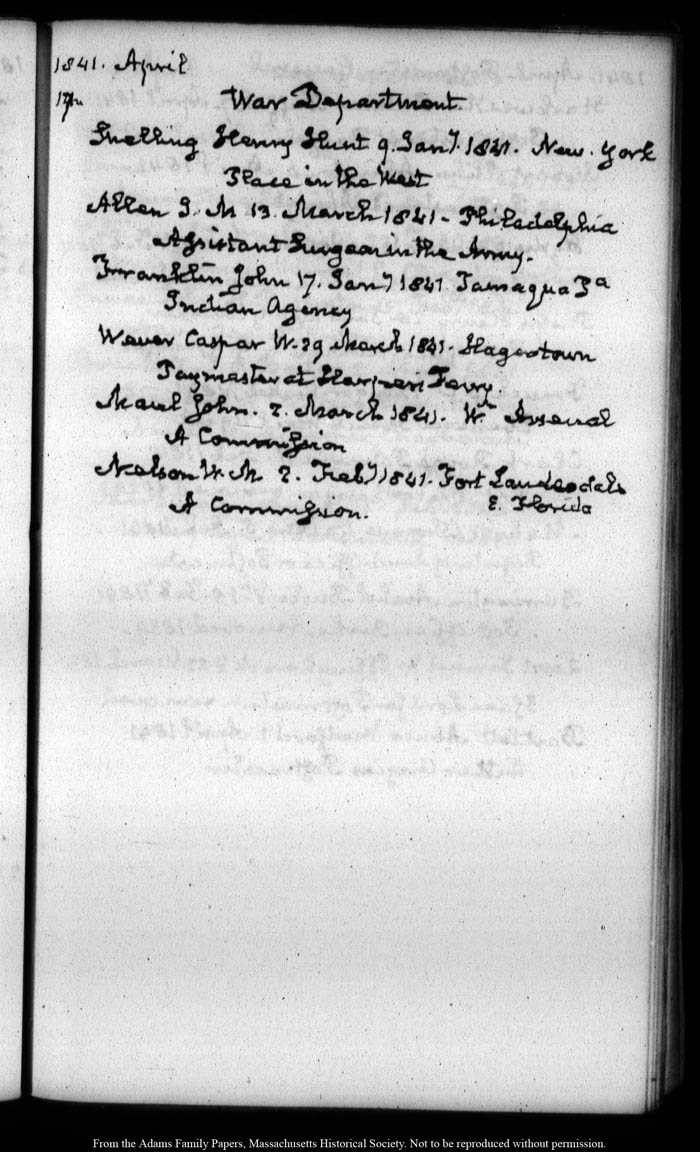 1841. April
17.
War Department.
Snelling Henry Hunt 9. Jany. 1841. New. York
Place in the West
Allen J. M 13. March 1841 - Philadelphia
Assistant Surgeon in the Army.
Franklin John 17. Jany 1841 Tamaqua Pa
Indian Agency
Wever Caspar W. 29 March 1841. Hagerstown
Paymaster at Harpers Ferry
Maul John. 2. March 1841. Wn Arsenal
A Commission
Nelson W. M. 2. Feby 1841. Fort Lauderdale
E. Florida
A Commission.
From the Adams Family Papers, Massachusetts Historical Society. Not to be reproduced without permission.